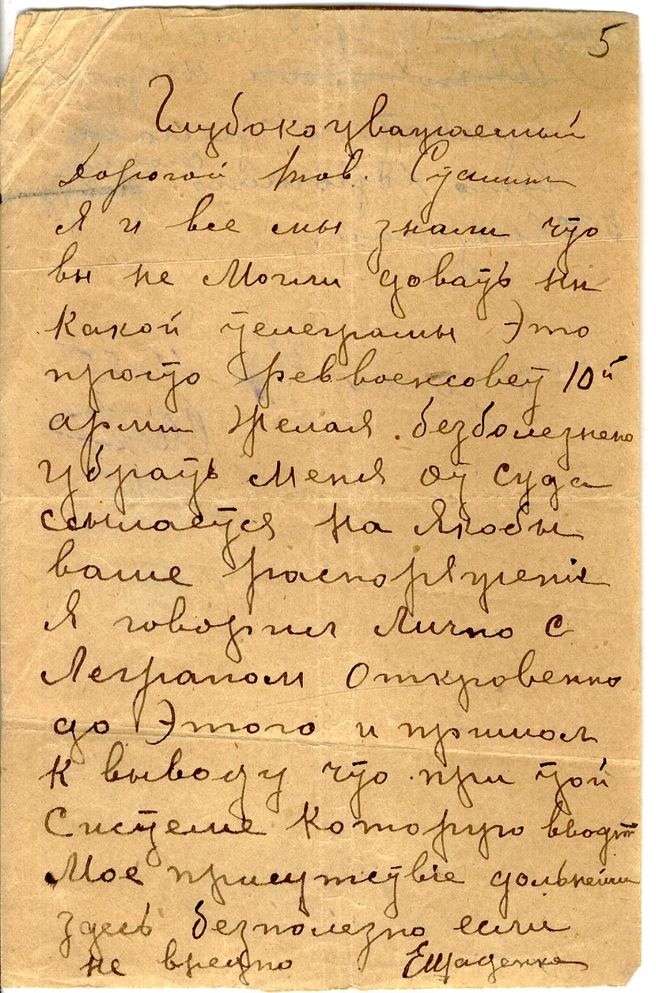 5
Глубокоуважаемый
Дорогой тов. Сталин
Я и все мы знали что
вы не могли довать ни
какой телеграмы Это
просто реввоенсовет 10й
армии Желая безболезнено
убрать меня от суда
ссылается на якобы
ваше распоряжение
Я говорил Лично с
Леграном Откровенно
до Этого и пришол
к выводу что при той
Системе которую вводят
Мое присутствiе дольнейши
здесь безполезно если
не вредно ЕЩаденко